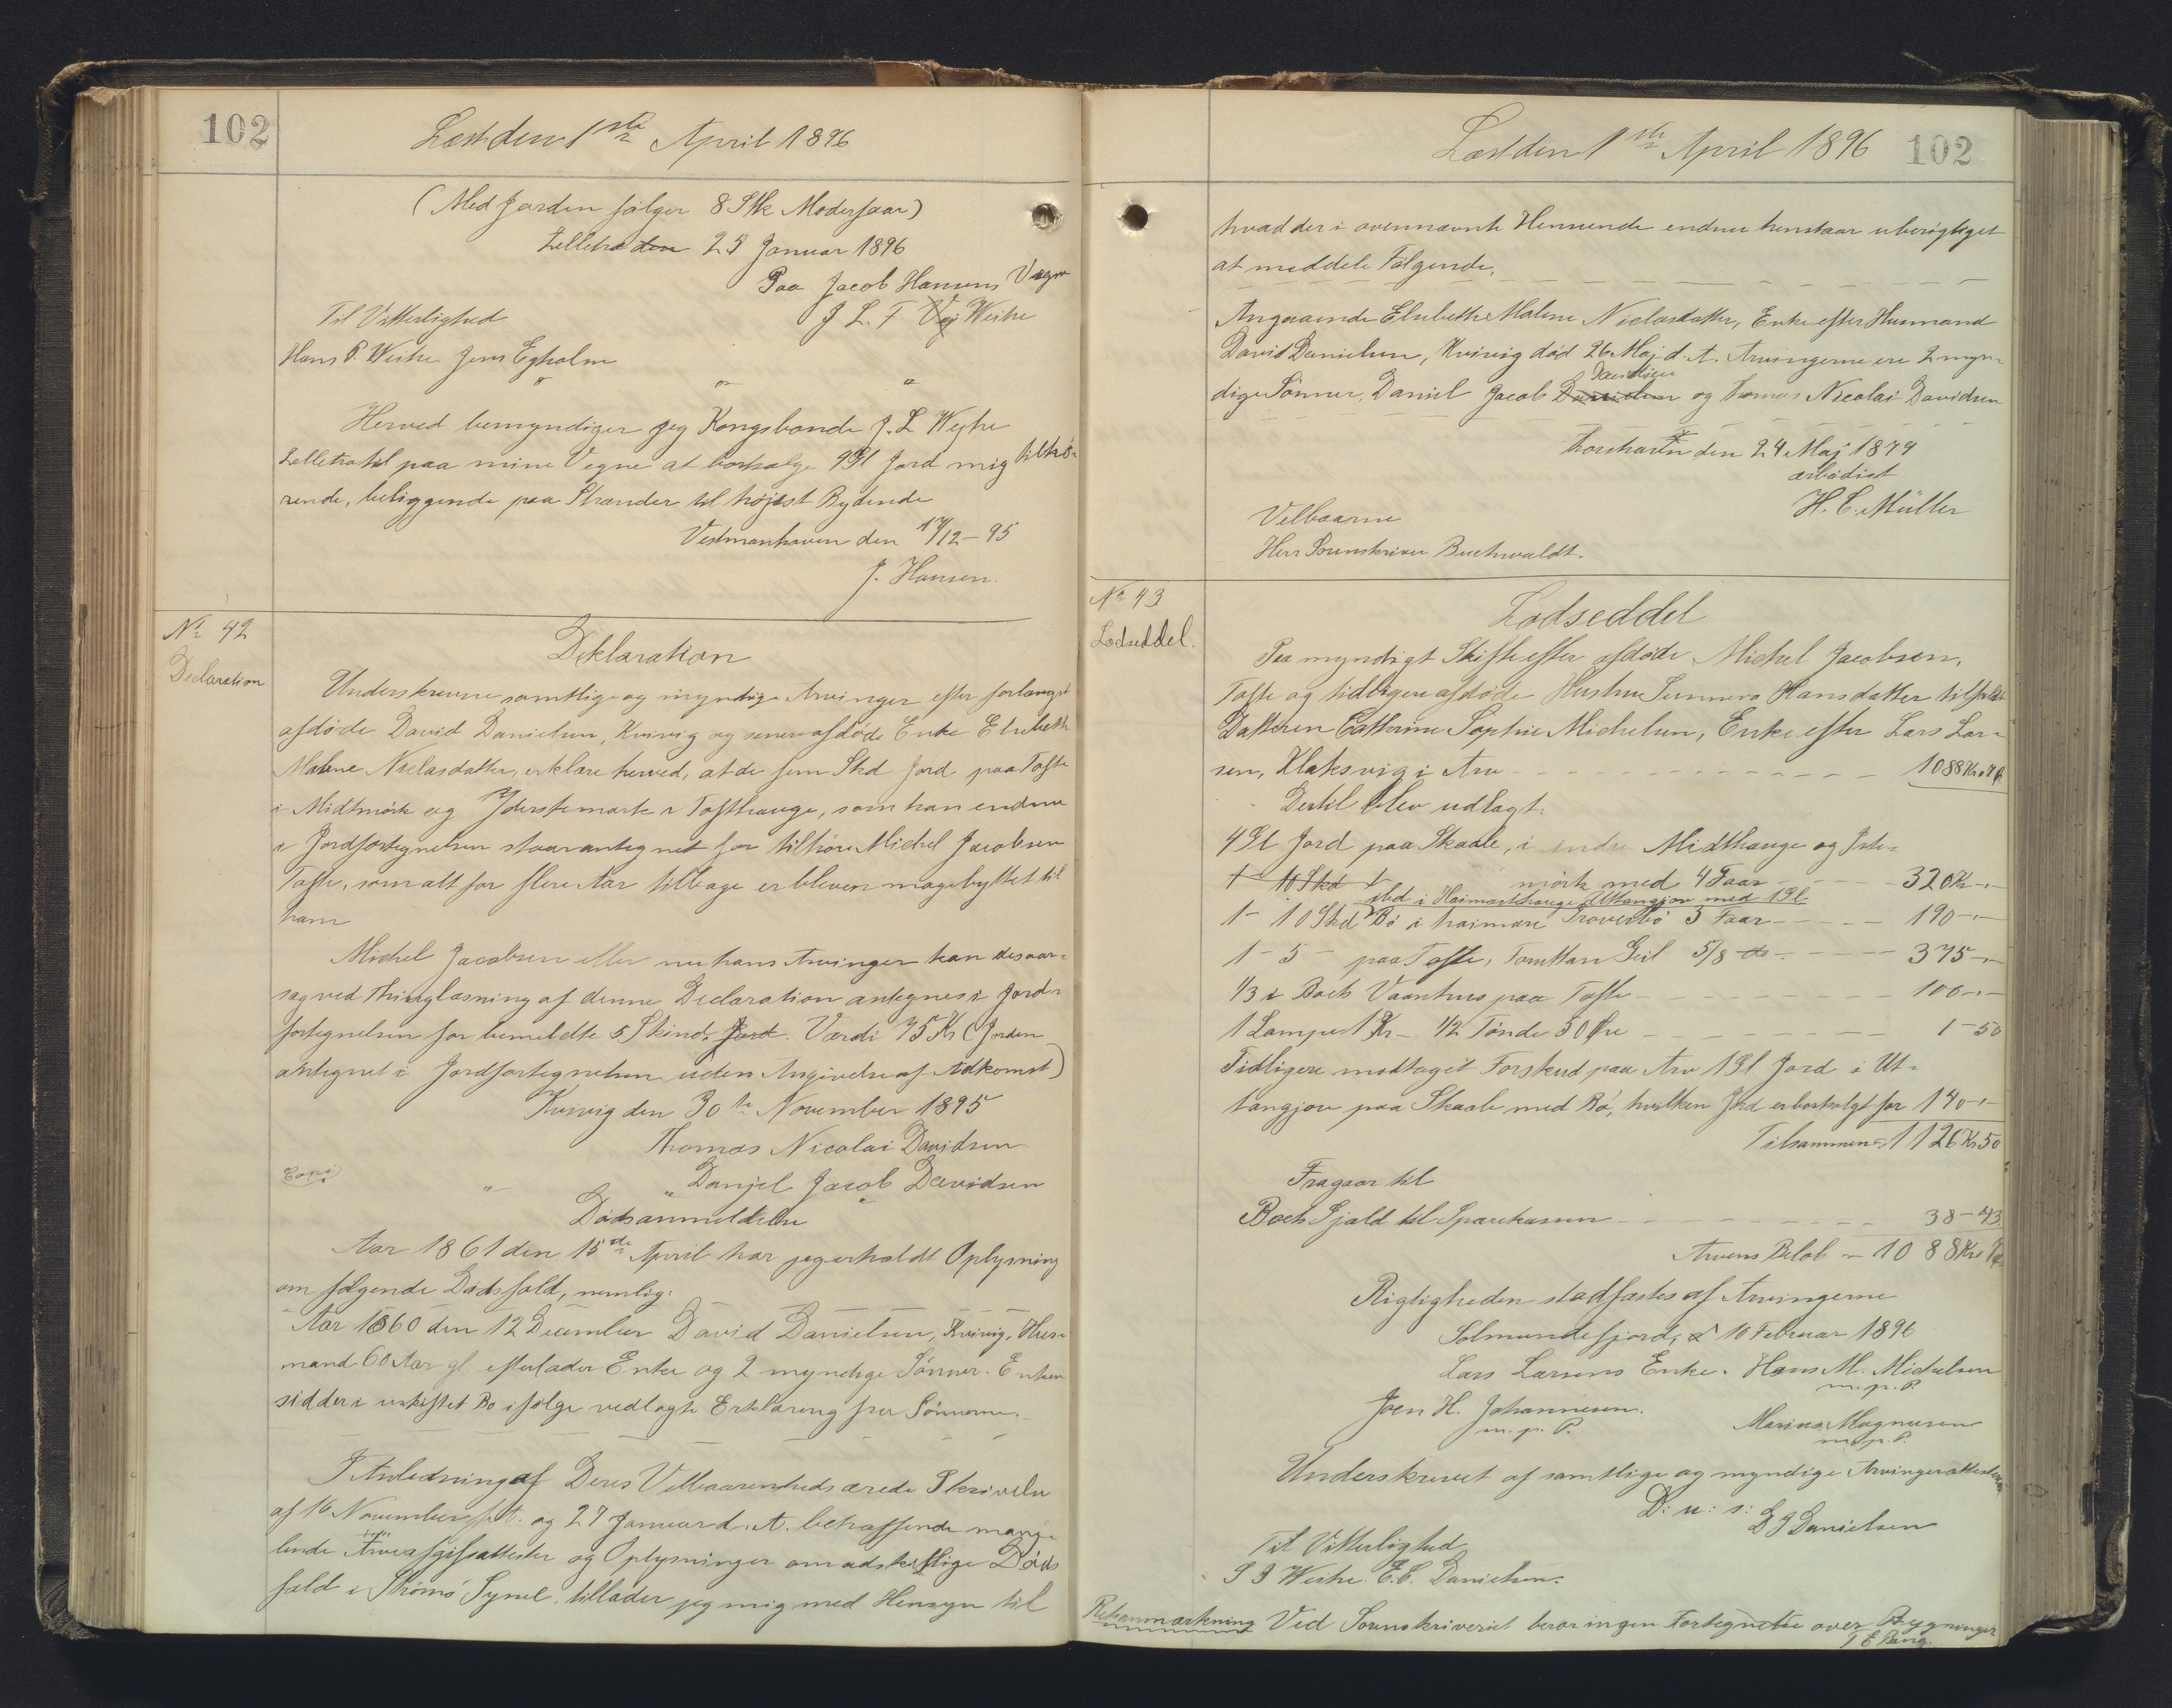 102
Læst den 1ste April 1896
(Med Jorden følger 8 Stk Moderfaar)
Lelletra den 25 Januar 1896
Paa Jacob Hansens Vegne
Til Vitterlighed
J. L. F Vej Weihe
Hans P. Weihe Jens Egholm
" " "
Herved bemyndiger jeg Kongsbonde J. L Wejhe
Lelletra til paa mine Vegne at bortsælge 9 Gl Jord mig tilhø-
rende, beliggende paa Strænder til højest Bydende
Vestmanhavn den 17/12-95
J. Hansen.
No 42
Declaration
Deklaration
Underskrevne samtlige og myndige Arvinger efter forlængst
afdøde David Danielsen, Kvivig og senere afdøde Enke Elsebeth
Malene Niclasdatter, erklære herved, at de fem Skd Jord paa Tofte
i Midtmörk og Yderstemark i Tofthauge, som han endnu
i Jordfortegnelsen staar antegnet for tilhøre Michel Jacobsen
Tofte, som alt for flere Aar tilbage er bleven magebyttet til
ham
Michel Jacobsen eller nu hans Arvinger kan desaar-
sag ved Thinglæsning af denne Declaration antegnes i Jord-
fortegnelsen for bemeldte 5 Skind Jord. Værdi 75 Kr (Jorden
antegnet i Jordfortegnelsen uden Angivelse af Adkomst)
Kvivig den 30te November 1895
Thomas Nicolai Davidsen
Copi " " Danjel Jacob Davidsen
Dødsanmeldelse
Aar 1861 den 15de April har jeg erholdt Oplysning
om følgende Dødsfald, nemlig:
Aar 1860 den 12 December David Danielsen, Kvivig, Huus-
mand 60 Aar gl. efterlader Enke og 2 myndige Sønner. Enken
sidder i uskiftet Bo ifølge vedlagte Erklæring fra Sønnerne.
I Anledning af Deres Velbaarenheds ærede Skrivelse
af 16 November f. A. og 27 Januar d. A. betræffende mang-
lende Arveafgifsattester og Oplysninger om adskillige Døds
fald i Strømø Syssel, tillader jeg mig med Hensyn til
Læst den 1ste April 1896
102
hvad der i ovennævnte Henseende endnu henstaar uberigtiget
at meddele Følgende.
Angaaende Elsebeth Malene Niclasdatter, Enke efter Husmand
David Danielsen, Kvivig død 26 Maj d. A. Arvingerne ere 2 myn-
Davidsen
dige Sønner, Daniel Jacob Danielsen og Thomas Nicolai Davidsen
Thorshavn den 24 Maj 1879
ærbødigst
H. C. Müller
Velbaarne
Herr Sorenskriver Buchwaldt.
No 43
Lodseddel.
Lodseddel
Paa myndigt Skifte efter afdøde Michel Jacobsen,
Tofte og tidligere afdøde Hustru Sunneva Hansdatter tilfaldt
Datteren Cathrine Sophie Michelsen, Enke efter Lars Lar-
sen, Klaksvig i Arv 1088 Kr. 7 Ø.
Dertil blev udlagt:
4 Gl Jord paa Skaale, i indre Midthauge og Iste-
1 10 Skd 1 mörk med 4 Faar 320 Kr -"-
ibd i Heimasthauge Uttangjov med 1 Gl
1 - 10 Skd Bö i haimare Traverbö 3 Faar 190 -"-
1 - 5 - paa Tofte, Tomttan Geil 5/8 do 375 -"-
1/3 i Boets Vaanhus paa Tofte 100 -"-
1 Lampe 1 Kr - 1/2 Tønde 50 Øre 1 - 50
Tidligere modtaget Forskud paa Arv 1 Gl Jord i Ut-
tangjov paa Skaale med Bö, hvilken Jord er bortsolgt for 140 -"-
Tilsammen = 1126 Kr 50
Fragaar til
Boets Gjæld til Sparekassen 38 - 43
Arvens Beløb - 1088 Kr. 7 Ø
Rigtigheden stadfæstes af Arvingerne
Solmundefjord, d 10 Februar 1896
Lars Larsens Enke. Hans M. Michelsen
m. p. P.
Joen H. Johannesen. Marius Magnusen
m. p. P. m. p. P.
Underskrevet af samtlige og myndige Arvinger attesteres
D: u: s: D J Danielsen
Til Vitterlighed
S J Weihe. E. C. Danielsen.
Retsanmærkning Ved Sorenskriveriet beror ingen Fortegnelse over Bygninger
T E Bang.